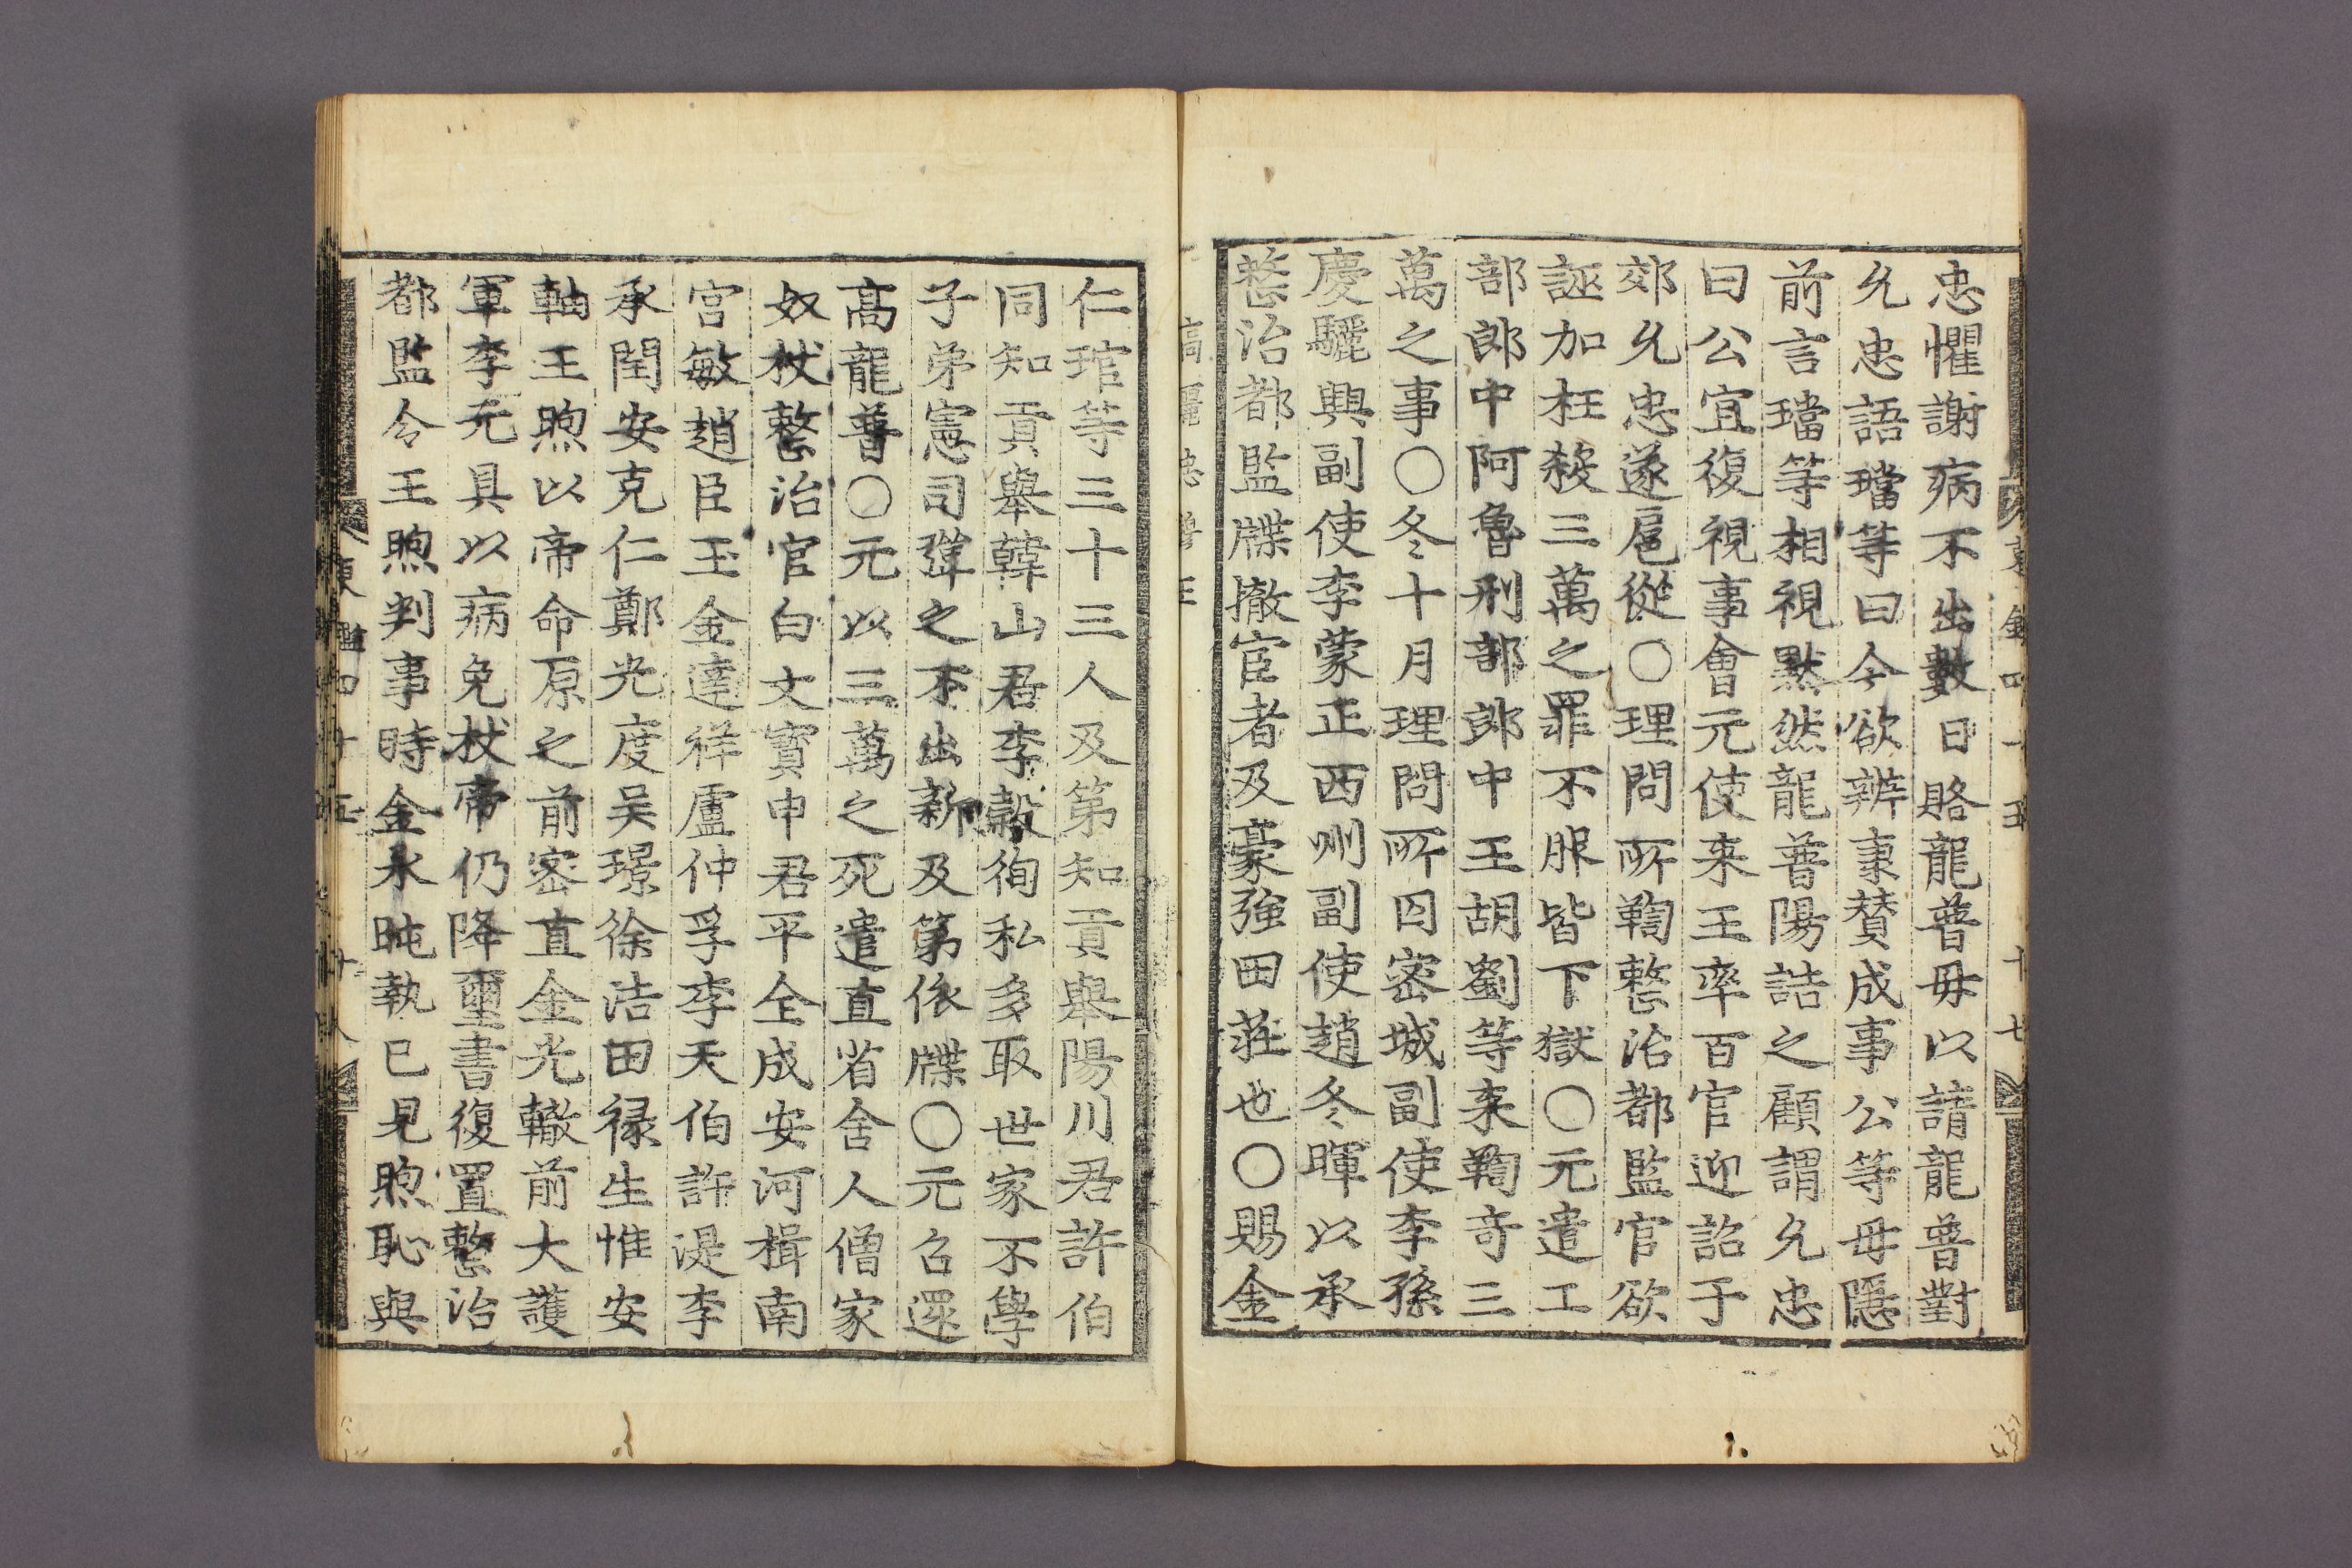 忠懼謝病不出數日賂龍普毋以請龍普對
允忠語璫等曰今欲辨稟賛成事公等毋隱
前言璫等相視默然龍普陽詰之顧謂允忠
曰公宜復視事會元使来王率百官迎詔于
郊允忠遂扈從○理問所鞫整治都監官欲
誣加枉殺三萬之罪不服皆下獄○元遣工
部郎中阿魯刑部郎中王胡劉等来鞫竒三
萬之事○冬十月理問所囚密城副使李孫
慶驪興副使李蒙正西州副使趙冬暉以承
整治都監牒撤宦者及豪強田莊也○賜金
高麗忠穆王
仁琯等三十三人及第知貢舉陽川君許伯
同知貢舉韓山君李穀徇私多取世家不學
子弟憲司彈之不出新及第依牒○元召還
高龍普○元以三萬之死遣直省舍人僧家
奴杖整治官白文寶申君平全成安河楫南
宮敏趙臣玉金達祥盧仲孚李天伯許湜李
承閏安克仁鄭光度吴璟徐浩田祿生惟安
軸王煦以帝命原之前密直金光轍前大護
軍李元具以病免杖帝仍降璽書復置整治
都監令王煦判事時金永旽執已見煦恥與
東鑑四十五
十八